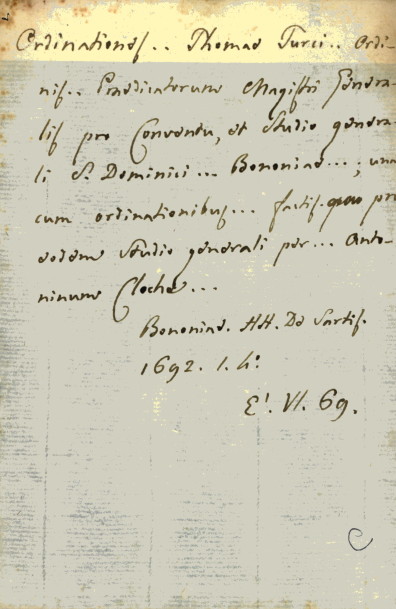 Ordinationes.. Thomae Turci.. Ordi-
nis.. Praedicatorum Magistri Genera-
lis pro Conventu, et Studio genera-
li S. Dominici... Bononiae...; una
cum ordinationibus... factis pro
eodem Studio generali per... Anto-
ninum Cloche...
Bononiae. HH. De Sartis.
1692. 1. 4:
E'. VI. 69.
C